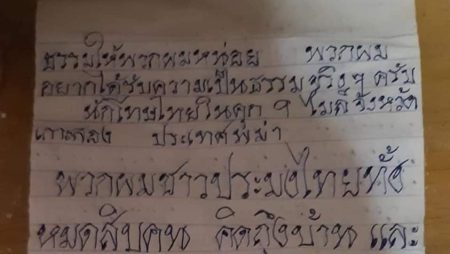 ธรรมให้พวกผมหน่อย พวกผม
อยากได้รับความเป็นธรรมจริงๆ ครับ
นักโทษไทยในคุก 9 ไมล์ จังหวัด
เกาะสอง ประเทศพม่า
พวกผมชาวประมงไทยทั้ง
หมดสิบคน คิดถึงบ้าน และ